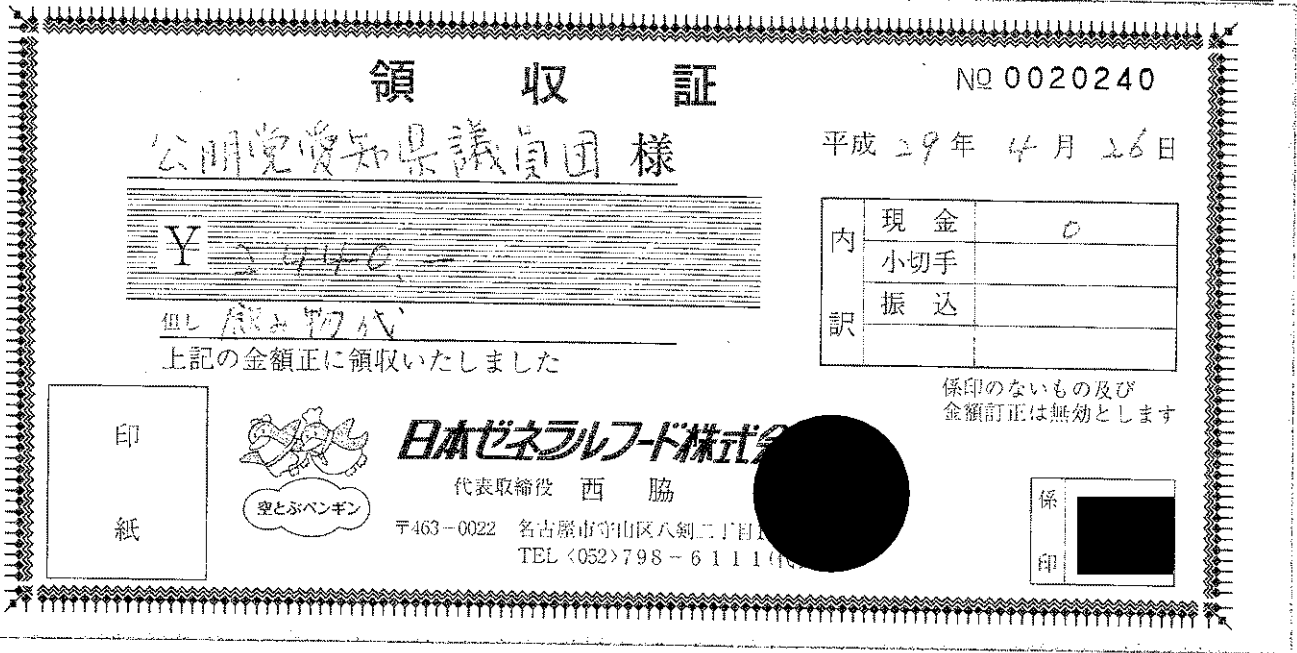 領収証
№ 0020240
公明党愛知県議員団 様
平成 29年 4月 26日
¥ 2440.―
但し 飲み物代
上記の金額正に領収いたしました
内訳
現金 0
小切手
振込
係印のないもの及び
金額訂正は無効とします
印紙
空とぶペンギン
日本ゼネラルフード株式会
代表取締役 西脇
〒463-0022 名古屋市守山区八剣二丁目1
TEL〈052〉798-6111(代
係印